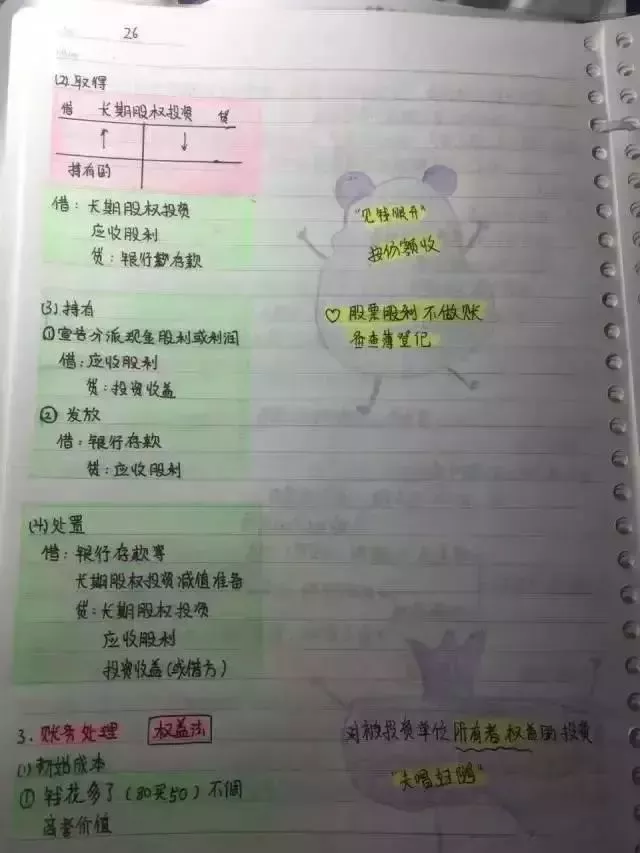 26
(2) 取得
借 长期股权投资 贷
↑ ↓
持有的
借：长期股权投资
应收股利
贷：银行存款
"见钱眼开"
按份额收
(3) 持有
♡ 股票股利 不做账
备查簿登记
① 宣告分派现金股利或利润
借：应收股利
贷：投资收益
② 发放
借：银行存款
贷：应收股利
(4) 处置
借：银行存款等
长期股权投资减值准备
贷：长期股权投资
应收股利
投资收益（或借方）
3. 账务处理 权益法
对被投资单位所有者权益的投资
"夫唱妇随"
(1) 初始成本
① 钱花多了（80买50）不调
高者价值